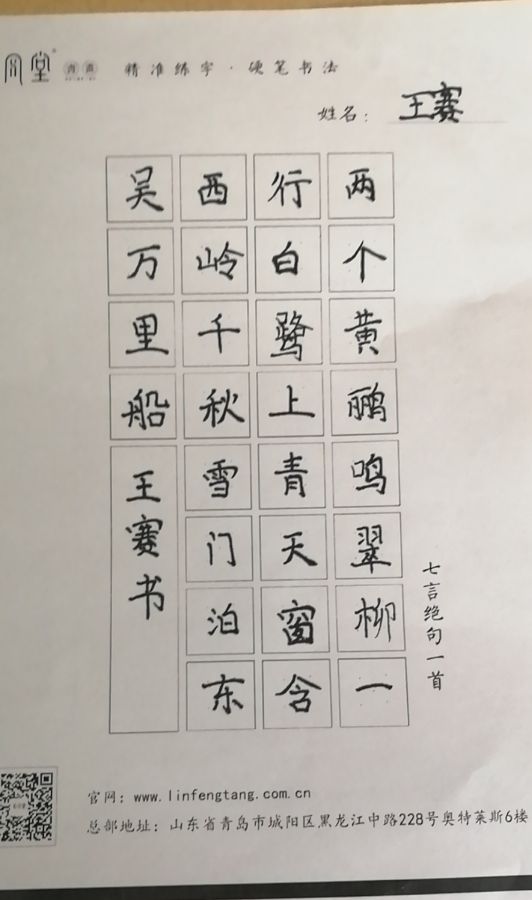 堂
精准练字·硬笔书法
姓名：王赛
两个黄鹂鸣翠柳一
行白鹭上青天窗含
西岭千秋雪门泊东
吴万里船
王赛书
七言绝句一首
官网：www.linfengtang.com.cn
总部地址：山东省青岛市城阳区黑龙江中路228号奥特莱斯6楼